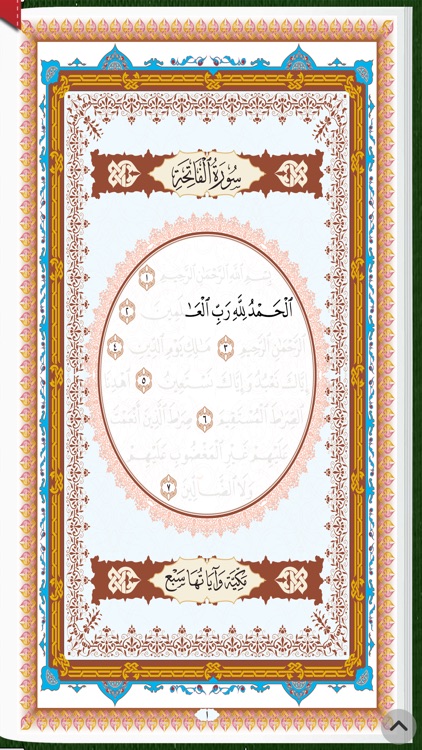 سُورَةُ ٱلْفَاتِحَةِ
بِسْمِ ٱللَّهِ ٱلرَّحْمَٰنِ ٱلرَّحِيمِ ١
ٱلْحَمْدُ لِلَّهِ رَبِّ ٱلْعَٰلَمِينَ ٢
ٱلرَّحْمَٰنِ ٱلرَّحِيمِ ٣ مَٰلِكِ يَوْمِ ٱلدِّينِ ٤
إِيَّاكَ نَعْبُدُ وَإِيَّاكَ نَسْتَعِينُ ٥ ٱهْدِنَا
ٱلصِّرَٰطَ ٱلْمُسْتَقِيمَ ٦ صِرَٰطَ ٱلَّذِينَ أَنْعَمْتَ
عَلَيْهِمْ غَيْرِ ٱلْمَغْضُوبِ عَلَيْهِمْ
وَلَا ٱلضَّآلِّينَ ٧
مَكِّيَّة وَآيَاتُهَا سَبْع
١